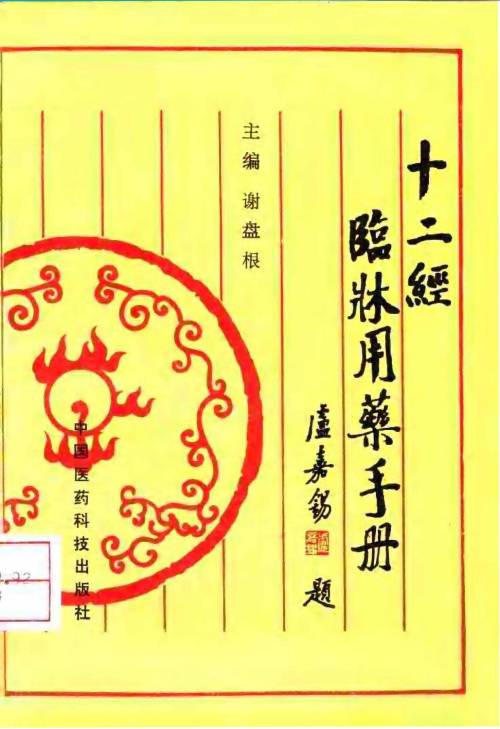 十二經
臨牀用藥手册
盧嘉锡
题
主编 谢盘根
中国医药科技出版社